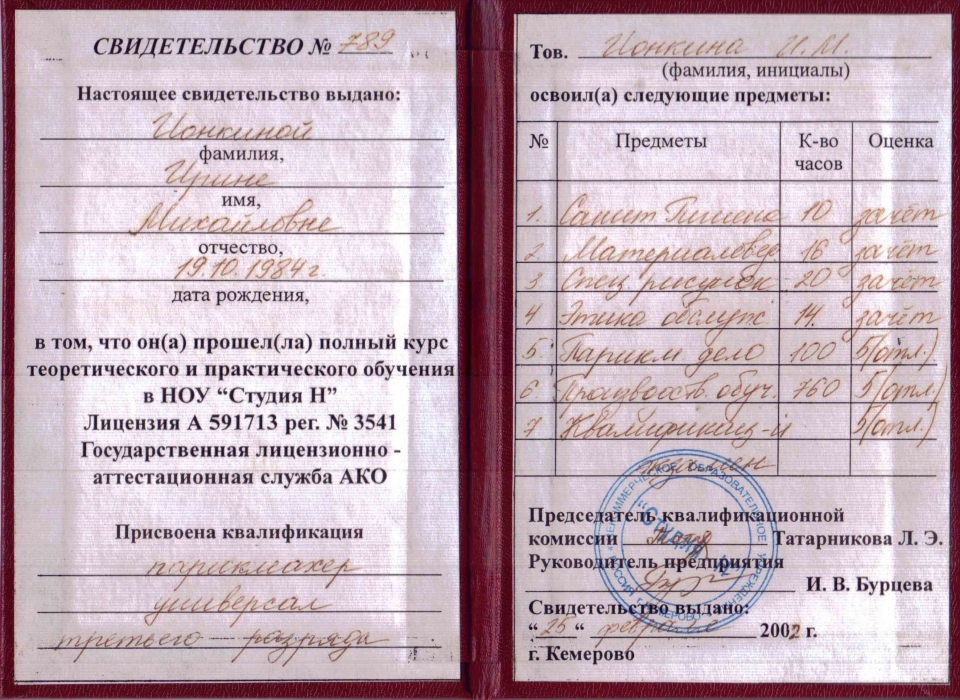 СВИДЕТЕЛЬСТВО № 789
Настоящее свидетельство выдано:
Ионкиной
фамилия,
Ирине
имя,
Михайловне
отчество,
19.10.1984 г.
дата рождения,
в том, что он(а) прошел(ла) полный курс
теоретического и практического обучения
в НОУ “Студия Н”
Лицензия А 591713 рег. № 3541
Государственная лицензионно -
аттестационная служба АКО
Присвоена квалификация
парикмахер
универсал
третьего разряда
Тов. Ионкина И.М.
(фамилия, инициалы)
освоил(а) следующие предметы:
№ Предметы К-во часов Оценка
1. Санит Гигиена 10 зачёт
2 Материаловед 16 зачёт
3 Спец. рисунок 20 зачёт
4 Этика обслуж 14. зачёт
5. Парикм дело 100 5(отл.)
6 Производств. обуч. 760 5(отл.)
7 Квалификац-й 5(отл.)
экзамен
Председатель квалификационной
комиссии Татарникова Л. Э.
Руководитель предприятия
И. В. Бурцева
Свидетельство выдано:
“ 25 “ февраля 2002 г.
г. Кемерово
НЕКОММЕРЧЕСКОЕ ОБРАЗОВАТЕЛЬНОЕ УЧРЕЖДЕНИЕ
“СТУДИЯ Н”
РОССИЯ КЕМЕРОВО